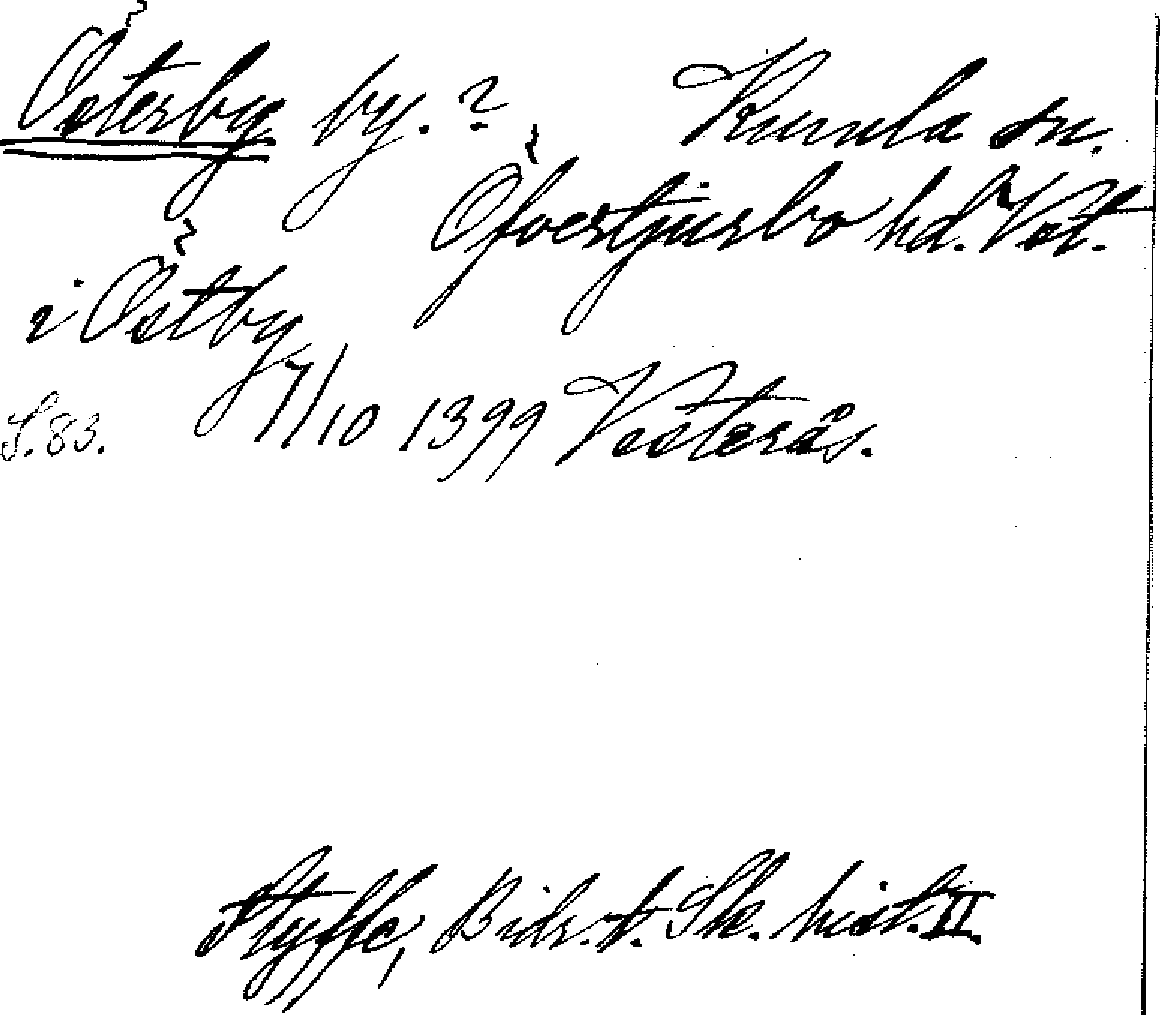 Österby by. ? Kumla sn.
Öfvertjurbo hd. Vstm.
i Östby
S. 83. 7/10 1399 Vesterås.
Styffe, Bidr. t. Sk. hist. II.